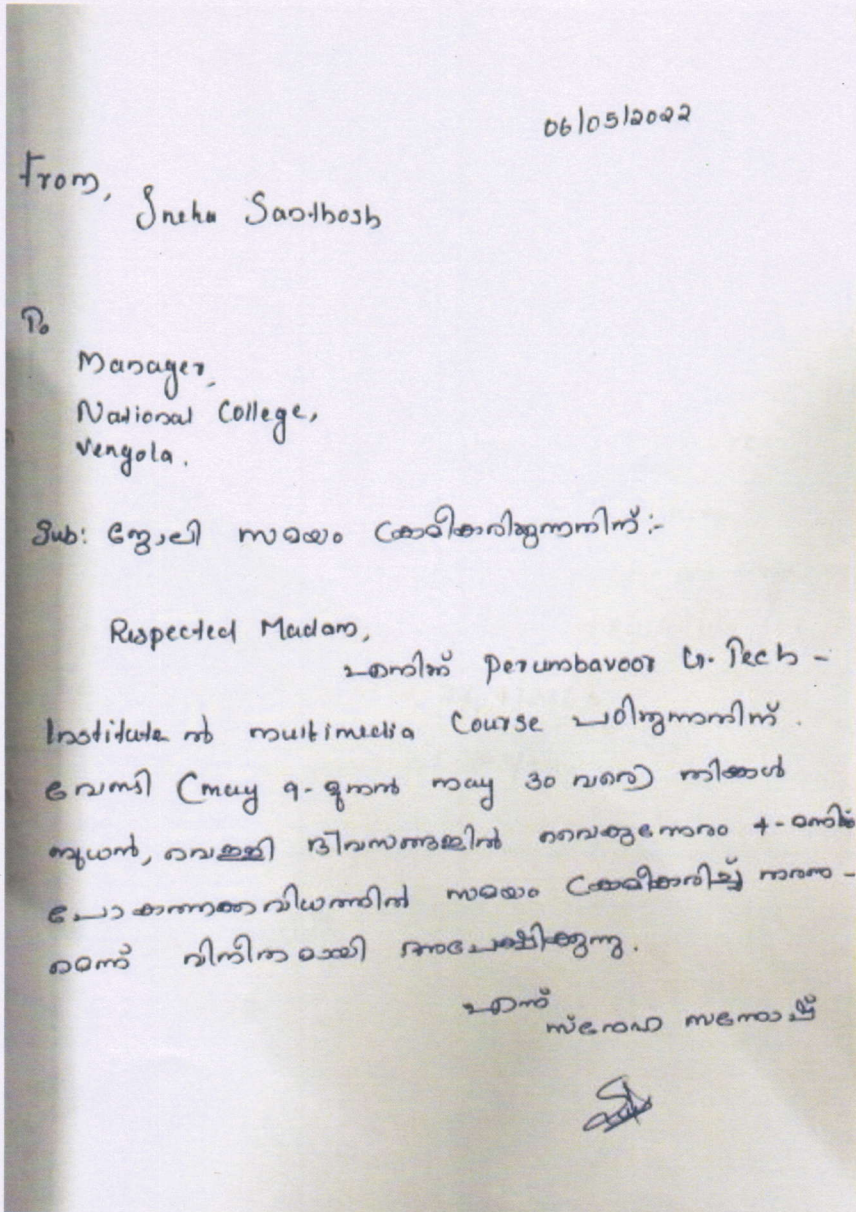 06/05/2022
From,
Sneha Santhosh
To
Manager,
National College,
Vengola.
Sub: ജോലി സമയം ക്രമീകരിക്കുന്നതിന് :-
Respected Madam,
എനിക്ക് Perumbavoor G-Tech -
Institute ൽ multimedia Course പഠിക്കുന്നതിന്
വേണ്ടി (may 9- മുതൽ may 30 വരെ) തിങ്കൾ
ബുധൻ, വെള്ളി ദിവസങ്ങളിൽ വൈകുന്നേരം 4-മണിക്ക്
പോകത്തക്കവിധത്തിൽ സമയം ക്രമീകരിച്ച് തരണ-
മെന്ന് വിനീതമായി അപേക്ഷിക്കുന്നു.
എന്ന്
സ്നേഹ സന്തോഷ്